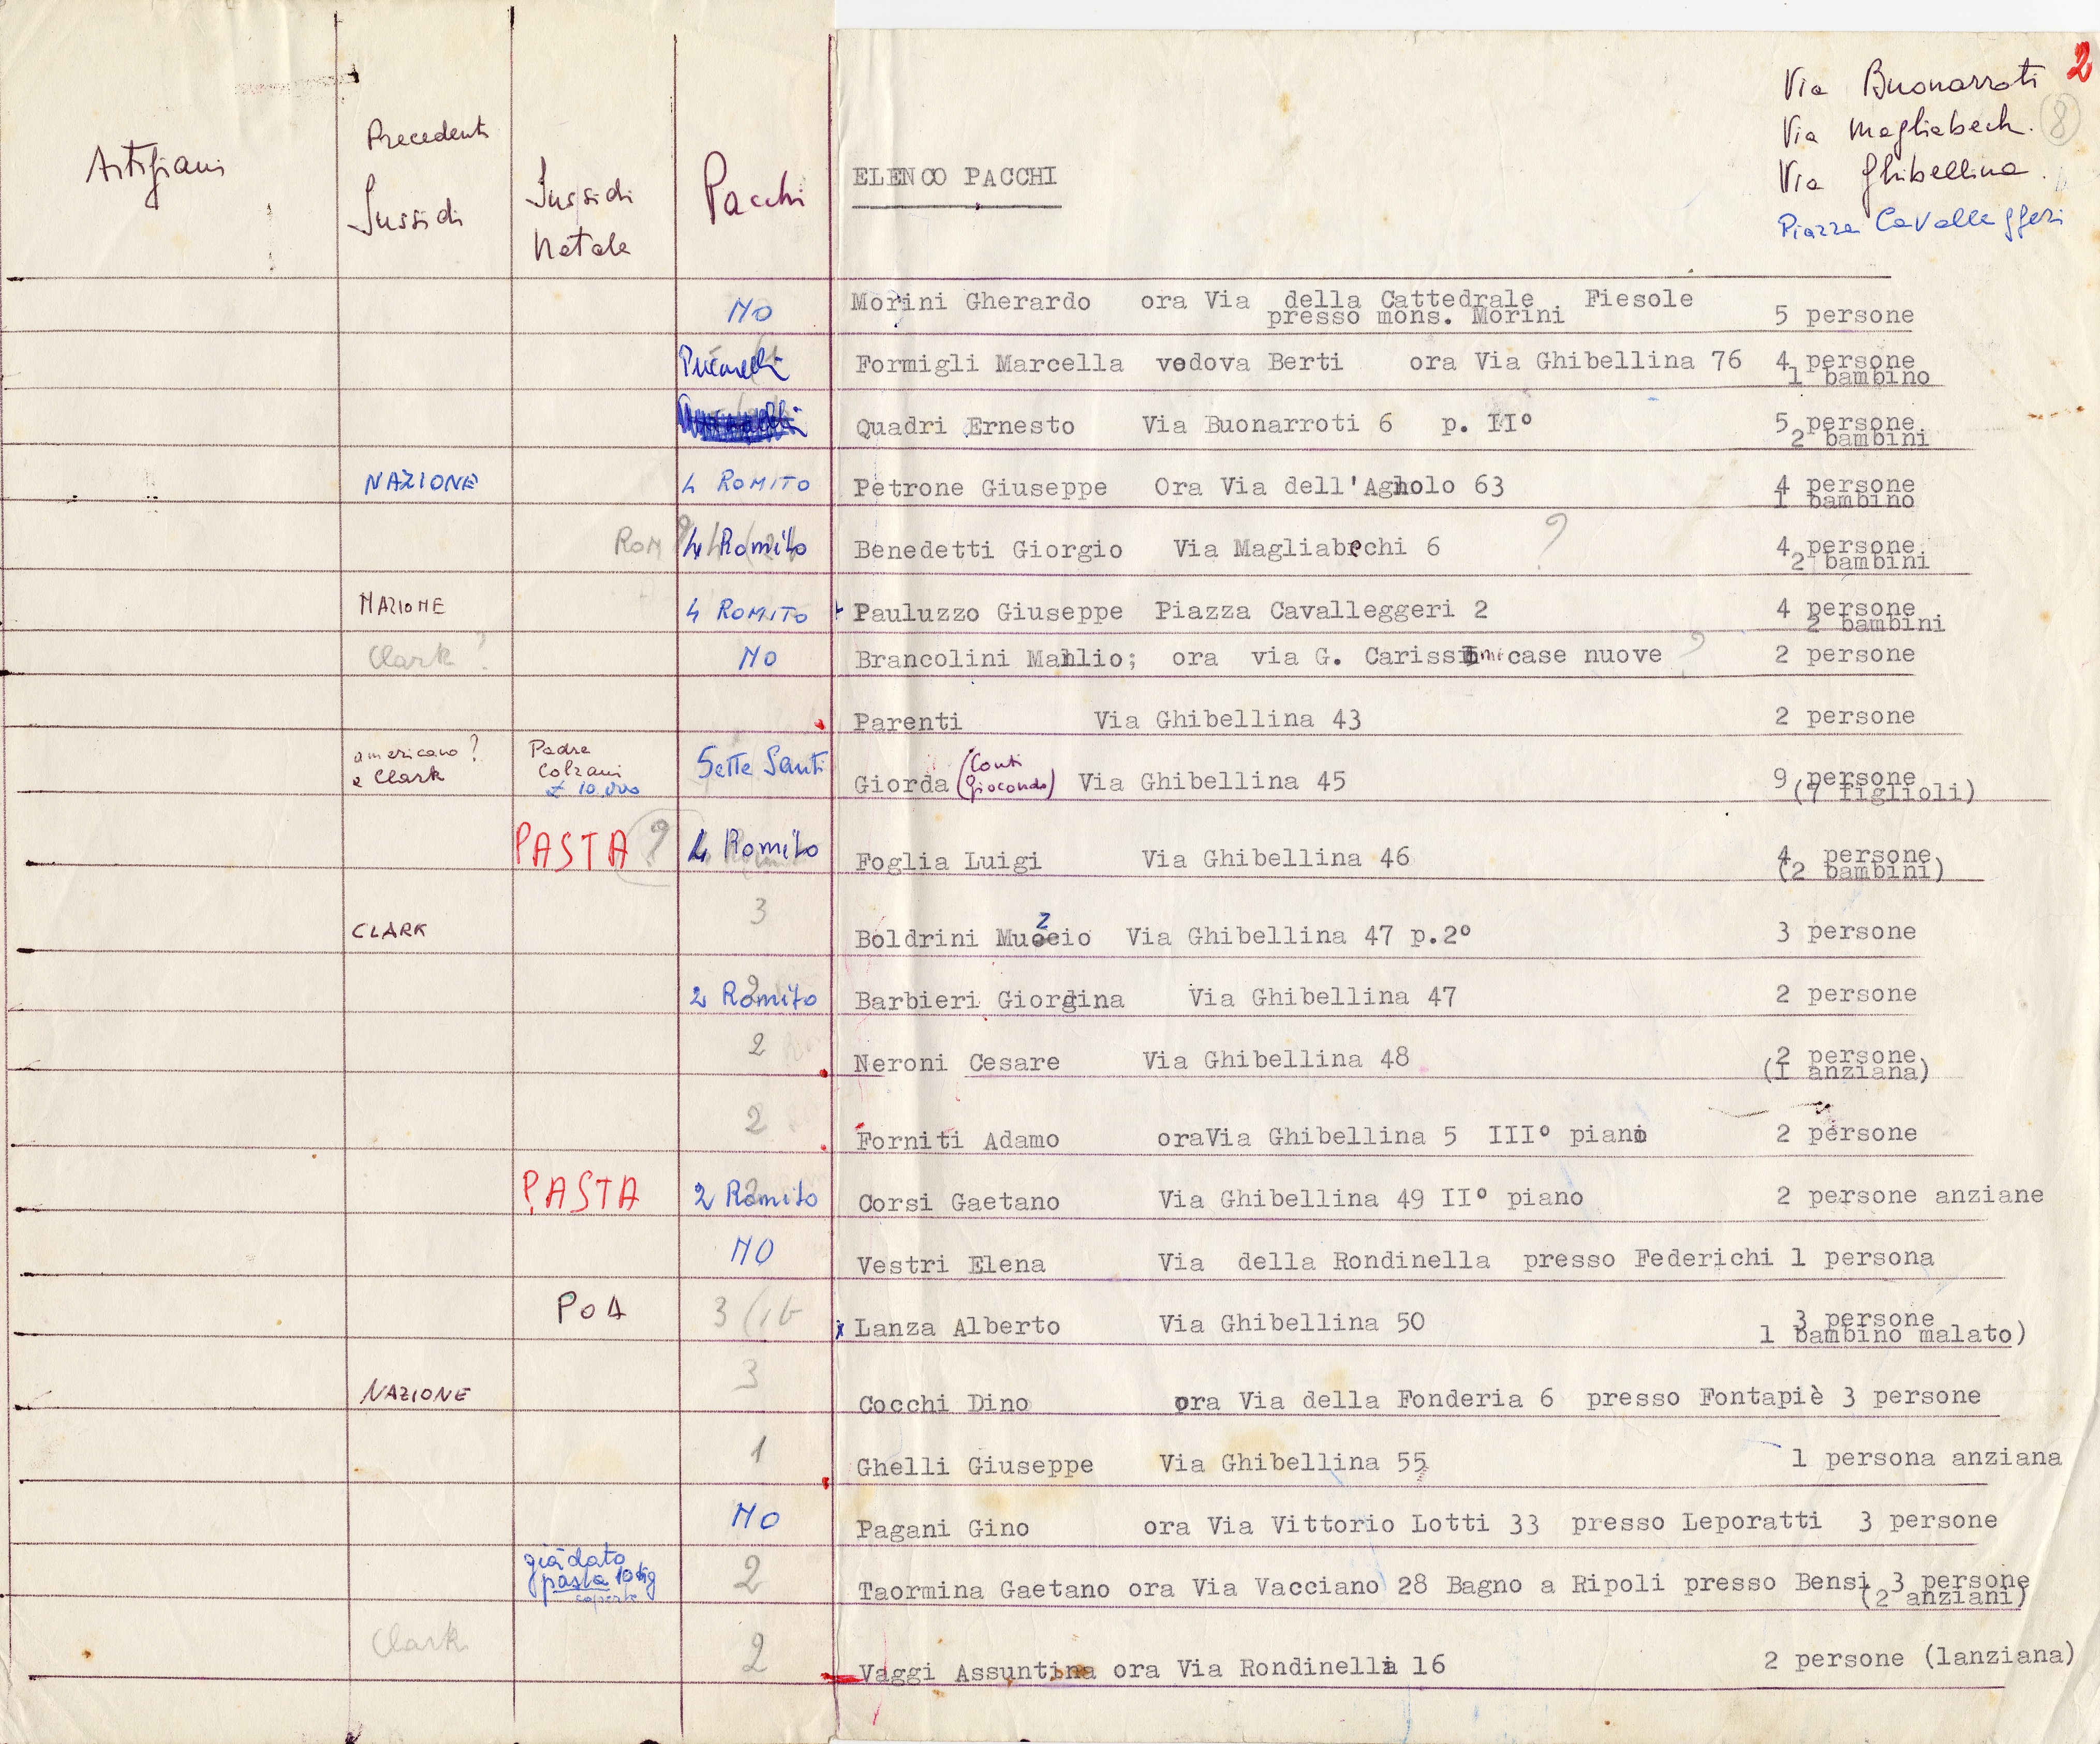 2
Via Buonarroti
Via Magliabech. 8
Via Ghibellina.
Piazza Cavalleggeri
Artigiani
Precedenti
Sussidi
Sussidi
Natale
Pacchi
ELENCO PACCHI
NO Morini Gherardo ora Via della Cattedrale Fiesole 5 persone
presso mons. Morini
Formigli Marcella vedova Berti ora Via Ghibellina 76 4 persone
1 bambino
Quadri Ernesto Via Buonarroti 6 p. II° 5 persone
2 bambini
NAZIONE 4 ROMITO Petrone Giuseppe Ora Via dell'Agnolo 63 4 persone
1 bambino
ROM ? 4 Romito Benedetti Giorgio Via Magliabechi 6 ? 4 persone
2 bambini
NAZIONE 4 ROMITO Pauluzzo Giuseppe Piazza Cavalleggeri 2 4 persone
2 bambini
Clark ? NO Brancolini Manlio; ora via G. Carissimi case nuove ? 2 persone
Parenti Via Ghibellina 43 2 persone
americano ?
e Clark
Padre
Colzani
£ 10.000
Sette Santi Giorda (Conti
Giocondo) Via Ghibellina 45 9 persone
(7 figlioli)
PASTA ? 4 Romito Foglia Luigi Via Ghibellina 46 4 persone
(2 bambini)
CLARK 3 Boldrini Muzio Via Ghibellina 47 p.2° 3 persone
2 Romito Barbieri Giorgina Via Ghibellina 47 2 persone
2 Neroni Cesare Via Ghibellina 48 2 persone
(1 anziana)
2 Forniti Adamo oraVia Ghibellina 5 III° piano 2 persone
PASTA 2 Romito Corsi Gaetano Via Ghibellina 49 II° piano 2 persone anziane
NO Vestri Elena Via della Rondinella presso Federichi 1 persona
POA 3 (1b x Lanza Alberto Via Ghibellina 50 3 persone
1 bambino malato)
NAZIONE 3 Cocchi Dino ora Via della Fonderia 6 presso Fontapiè 3 persone
1 Ghelli Giuseppe Via Ghibellina 55 1 persona anziana
NO Pagani Gino ora Via Vittorio Lotti 33 presso Leporatti 3 persone
già dato
pasta 10 kg
2 Taormina Gaetano ora Via Vacciano 28 Bagno a Ripoli presso Bensi 3 persone
(2 anziani)
Clark 2 Vaggi Assuntina ora Via Rondinella 16 2 persone (lanziana)